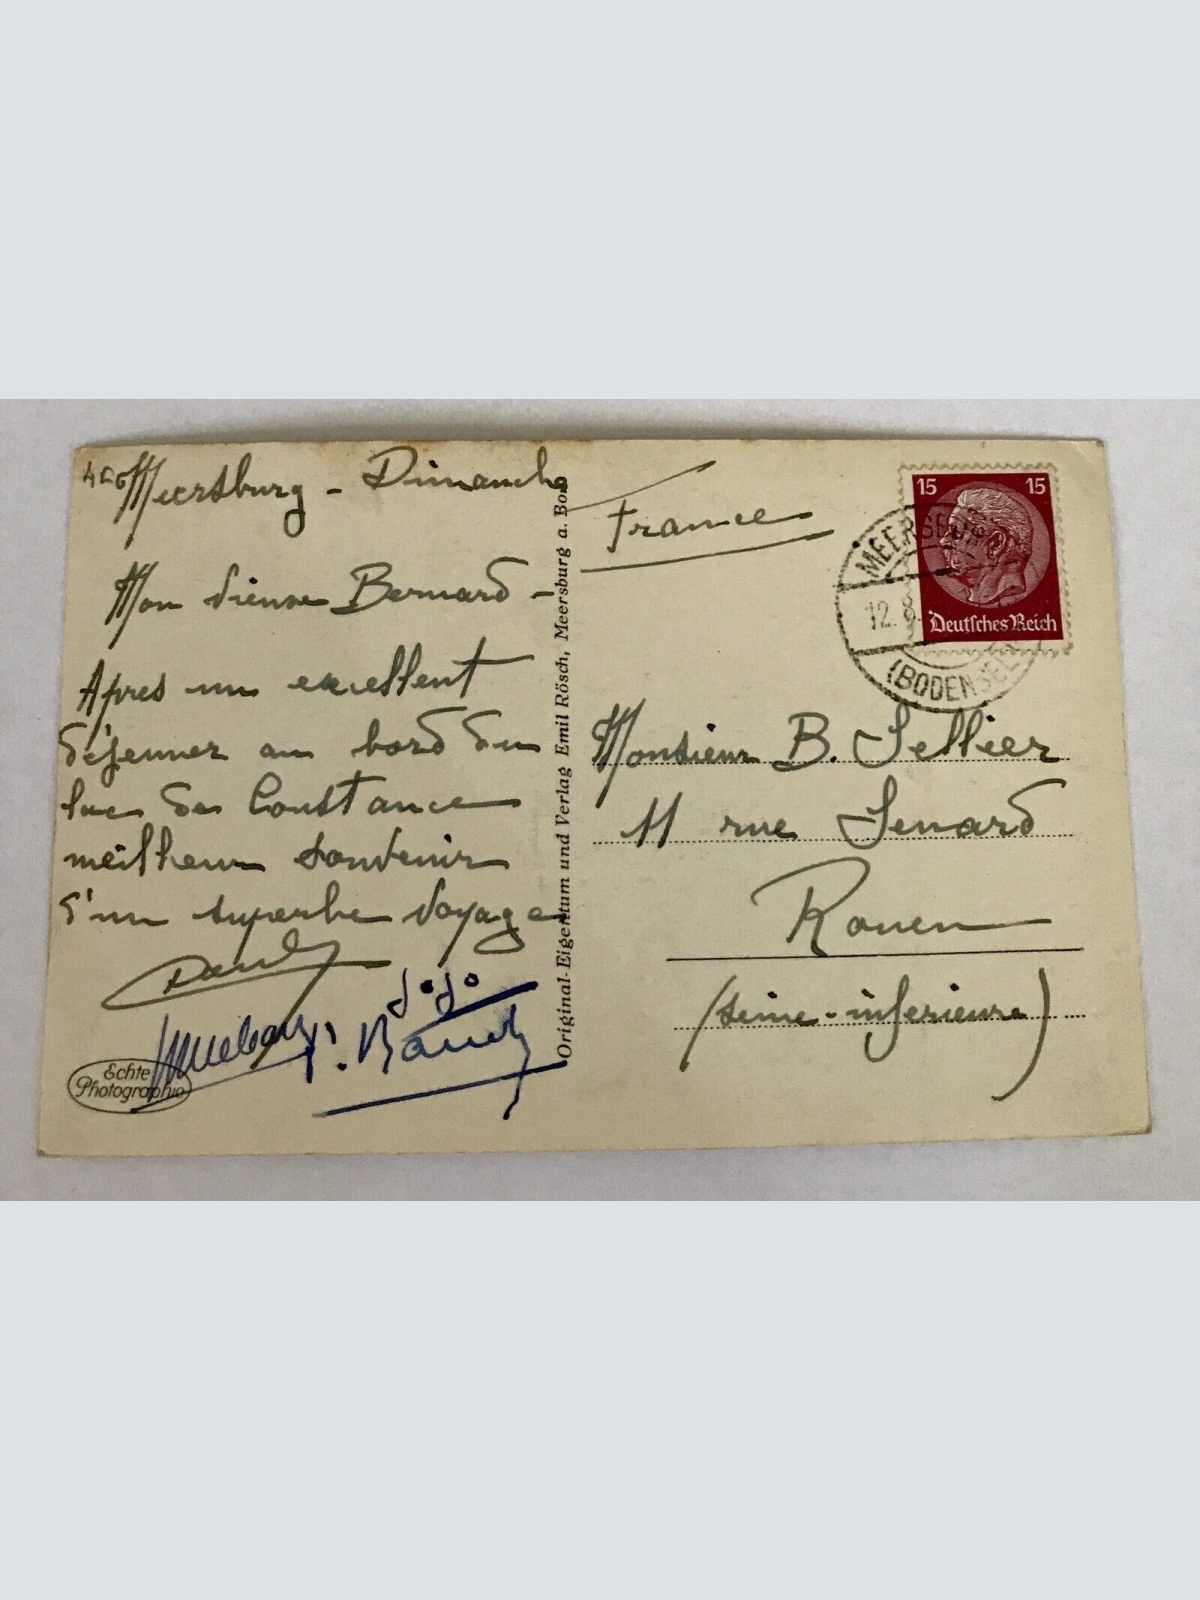 Meersburg - Dimanche
Mon vieux Bernard -
Après un excellent
déjeuner au bord du
lac de Constance
meilleur souvenir
d'un superbe voyage
Paul
Jojo
Echte
Photographie
Original-Eigentum und Verlag Emil Rösch, Meersburg a. Bod
France
15 15
Deutsches Reich
MEERSBURG
12. 8.
(BODENSEE)
Monsieur B. Sellier
11 rue Senard
Rouen
(Seine-inferieure)